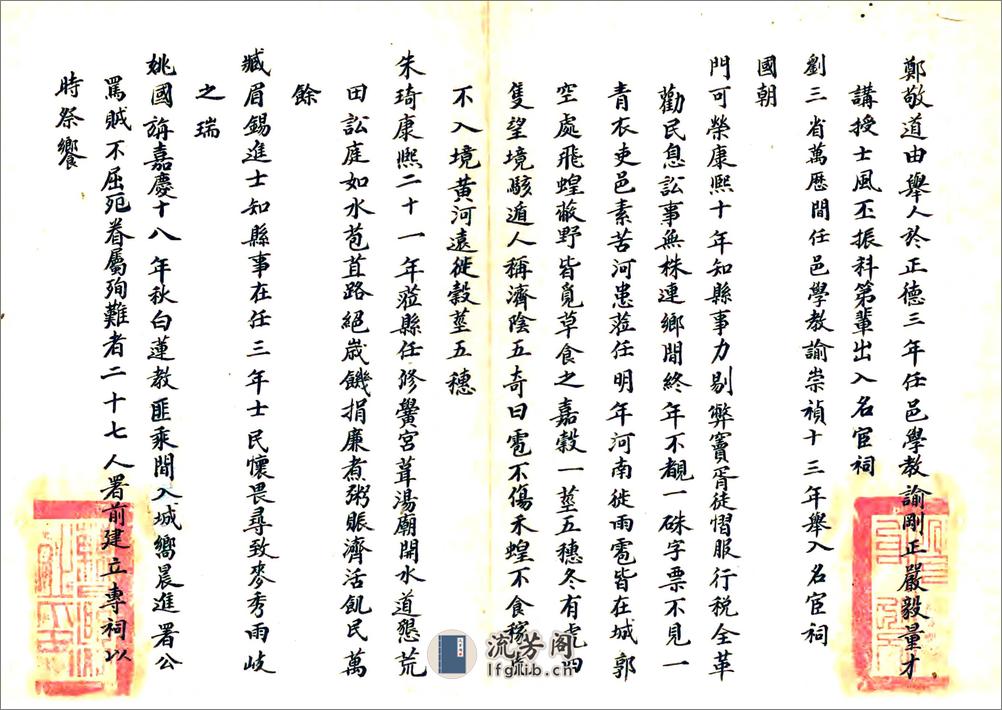 鄭敬道由舉人於正德三年任邑學教諭剛正嚴毅量才
講授士風丕振科第輩出入名宦祠
劉三省萬歷間任邑學教諭崇禎十三年舉入名宦祠
國朝
門可榮康熙十年知縣事力剔弊竇胥徒慴服行税全革
勸民息訟事無株連鄉閭終年不覩一硃字票不見一
青衣吏邑素苦河患蒞任明年河南徙雨雹皆在城郭
空處飛蝗蔽野皆覓草食之嘉穀一莖五穗冬有虎四
隻望境駭遁人稱濟陰五奇曰雹不傷禾蝗不食稼虎
不入境黃河遠徙穀莖五穗
朱琦康熙二十一年蒞縣任修黌宮葺湯廟開水道懇荒
田訟庭如水苞苴路絕歲饑捐廉煮粥賑濟活飢民萬
餘
臧眉錫進士知縣事在任三年士民懷畏尋致麥秀兩歧
之瑞
姚國旃嘉慶十八年秋白蓮教匪乘間入城嚮晨進署公
罵賊不屈死眷屬殉難者二十七人署前建立專祠以
時祭饗
流芳阁
lfglib.cn